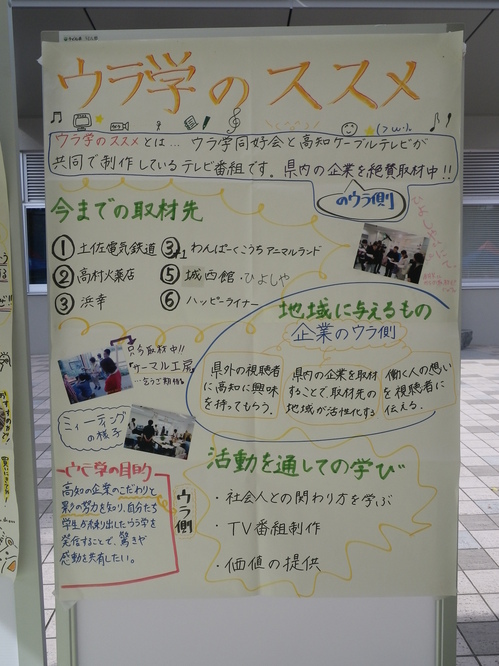 ウラ学のススメ
ウラ学のススメとは… ウラ学同好会と高知ケーブルテレビが
共同で制作しているテレビ番組です。県内の企業を絶賛取材中!!
のウラ側
今までの取材先
① 土佐電気鉄道
② 高村火薬店
③ 浜幸
わんぱーくこうちアニマルランド
⑤ 城西館・ひよしや
⑥ ハッピーライナー
地域に与えるもの
企業のウラ側
県外の視聴者
に高知に興味
を持ってもらう.
県内の企業を取材
することで、取材先の
地域が活性化する
働く人の想い
を視聴者に
伝える.
只今取材中!!
サーマル工房
ミーティング
の様子
ウラ学の目的
高知の企業のこだわりと
努力を知り、自分たち
学生が掘り出したウラ学を
発信することで、驚きや
感動を共有したい。
ウラ側
活動を通しての学び
・社会人との関わり方を学ぶ
・TV番組制作
・価値の提供